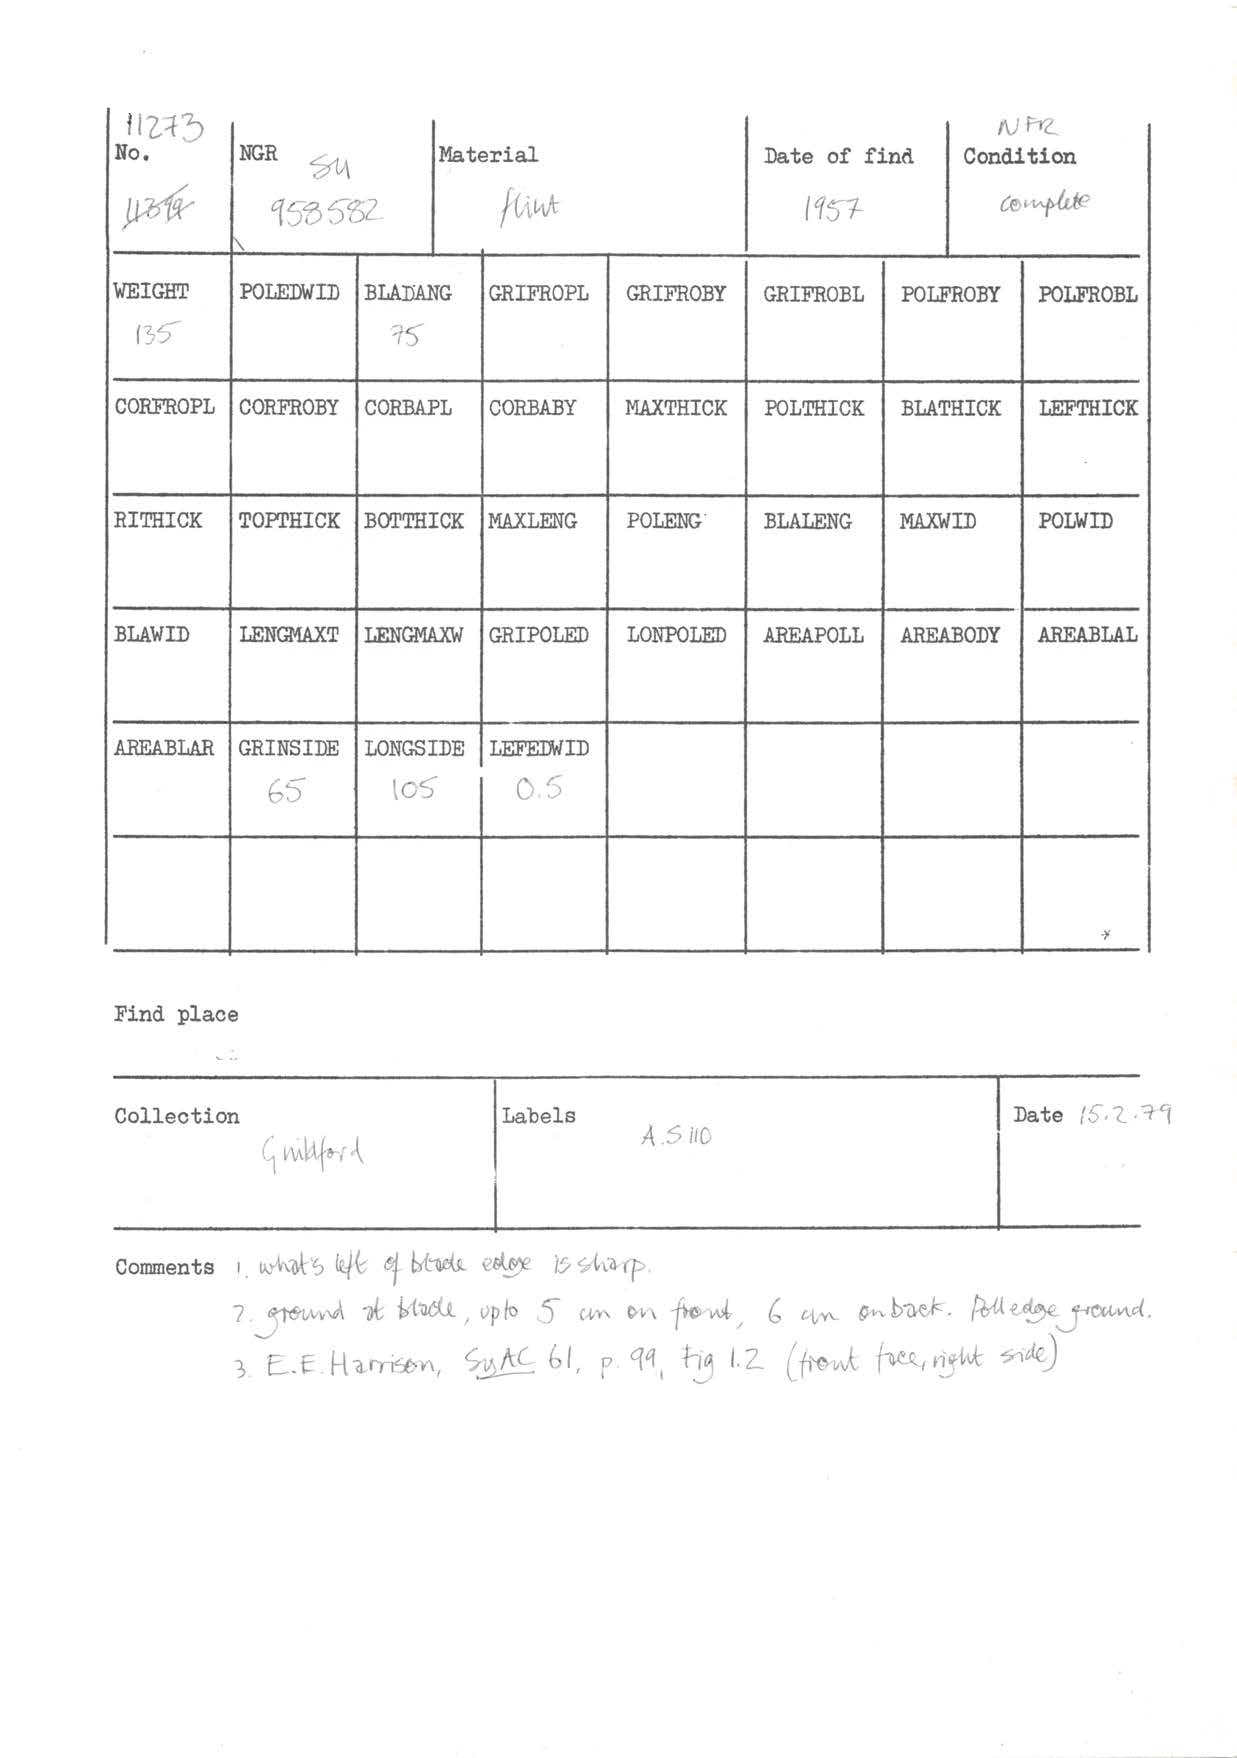 11273 NFR
No. NGR SU Material Date of find Condition
958582 flint 1957 complete
WEIGHT POLEDWID BLADANG GRIFROPL GRIFROBY GRIFROBL POLFROBY POLFROBL
135 75
CORFROPL CORFROBY CORBAPL CORBABY MAXTHICK POLTHICK BLATHICK LEFTHICK
RITHICK TOPTHICK BOTTHICK MAXLENG POLENG BLALENG MAXWID POLWID
BLAWID LENGMAXT LENGMAXW GRIPOLED LONPOLED AREAPOLL AREABODY AREABLAL
AREABLAR GRINSIDE LONGSIDE LEFEDWID
65 105 0.5
Find place
Collection Labels Date 15.2.79
Guildford A.S110
Comments 1. what's left of blade edge is sharp.
2. ground at blade, upto 5 cm on front, 6 cm on back. Poll edge ground.
3. E.E. Harrison, SyAC 61, p. 99, Fig 1.2 (front face, right side)